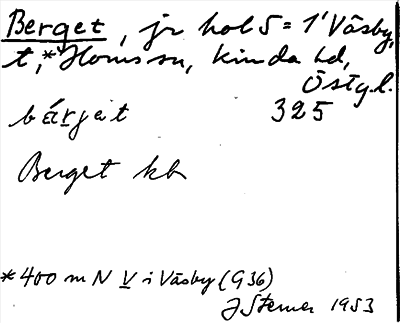 Berget, jr hol S = 1' Väsby,
t, * Horns sn, Kinda hd,
Östg.l.
bárjet 325
Berget kb
* 400 m N V i Väsby (G36)
J Sterner 1953